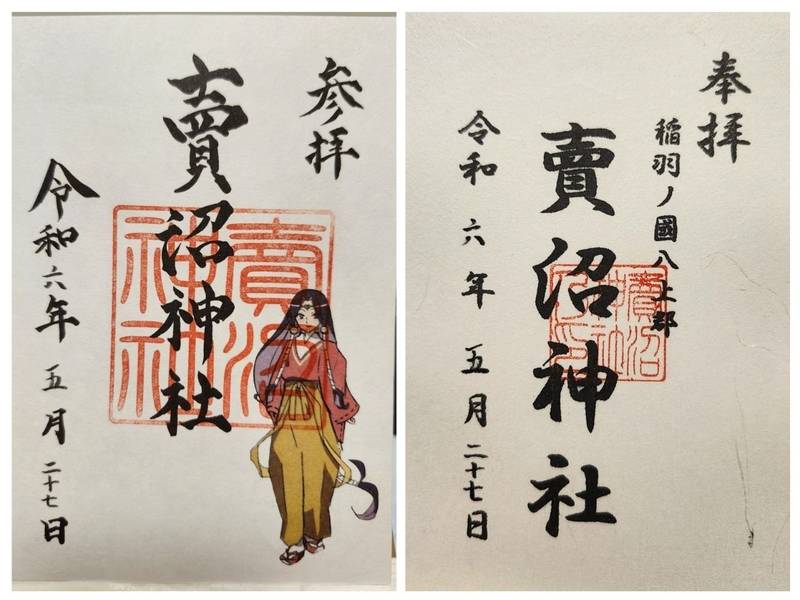 参拝
賣沼神社
賣沼
神社
令和六年五月二十七日
奉拝
稲羽ノ國八上郡
賣沼神社
令和六年五月二十七日